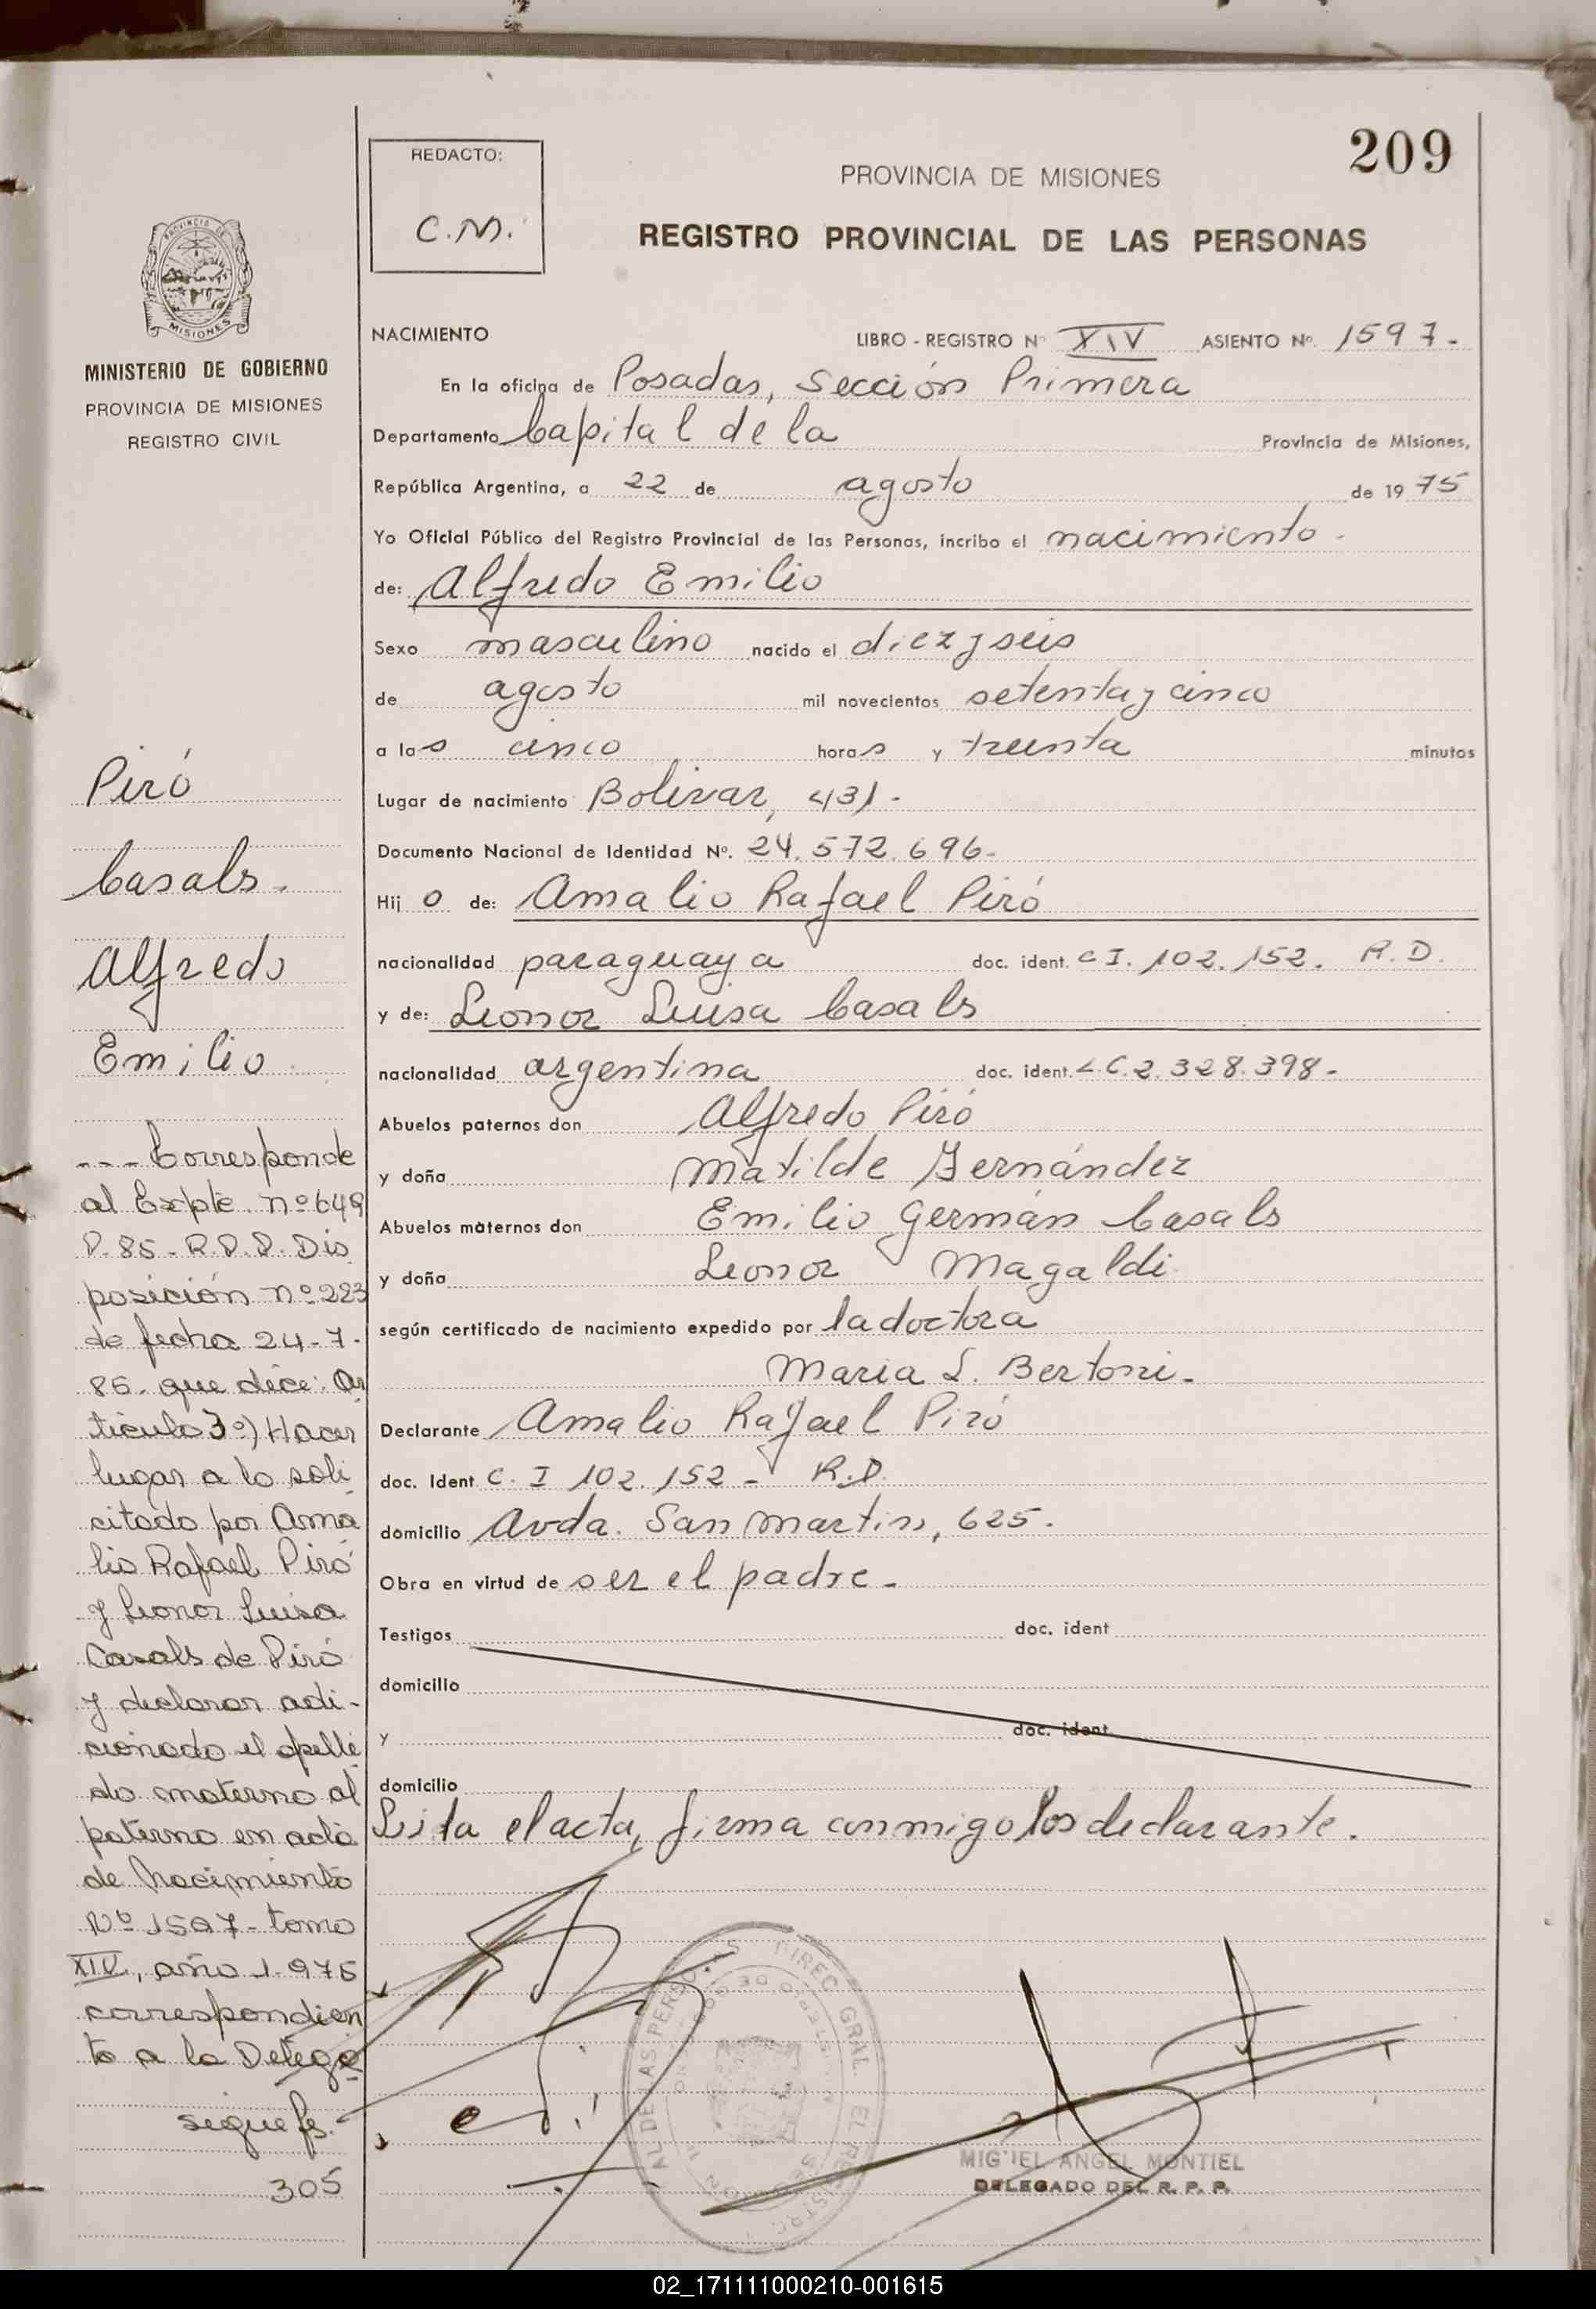 209
REDACTO:
C.M.
PROVINCIA DE MISIONES
REGISTRO PROVINCIAL DE LAS PERSONAS
MISIONES
MINISTERIO DE GOBIERNO
PROVINCIA DE MISIONES
REGISTRO CIVIL
NACIMIENTO LIBRO - REGISTRO Nº XIV ASIENTO Nº. 1597.-
En la oficina de Posadas, Sección Primera
Departamento Capital de la Provincia de Misiones,
República Argentina, a 22 de agosto de 19 75
Yo Oficial Público del Registro Provincial de las Personas, incribo el nacimiento.
de: Alfredo Emilio
Sexo masculino nacido el diez y seis
de agosto mil novecientos setenta y cinco
a las cinco horas y treinta minutos
Lugar de nacimiento Bolivar, 431.-
Documento Nacional de Identidad Nº. 24.572.696-
Hij o de: Amalio Rafael Piró
nacionalidad paraguaya doc. ident. C I. 102.152. R.D.
y de: Leonor Luisa Casals
nacionalidad argentina doc. ident. L C. 2.328.398-
Abuelos paternos don Alfredo Piró
y doña Matilde Fernández
Abuelos maternos don Emilio Germán Casals
y doña Leonor Magaldi
según certificado de nacimiento expedido por la doctora
Maria L. Bertoni.-
Declarante Amalio Rafael Piró
doc. Ident C. I 102.152- R.D.
domicilio Avda. San Martin, 625.
Obra en virtud de ser el padre-
Testigos doc. ident
domicilio
y doc. ident
domicilio
Leida el acta, firma conmigo los declarante.
Piró
Casals.
Alfredo
Emilio
--- Corresponde
al Expte. nº 649
P. 85 - R.P.P. Dis
posición nº 223
de fecha 24-7-
85. que dice: Ar
ticulo 3º) Hacer
lugar a lo soli
citado por Ama
lio Rafael Piró
y Leonor Luisa
Casals de Piró
y declarar adi-
cionado el apelli
do materno al
paterno en acta
de Nacimiento
Nº 1597 - tomo
XIV, año 1.975
correspondien
te a la Delega
sigue fs.
305
MIGUEL ANGEL MONTIEL
DELEGADO DEL R. P. P.
02_171111000210-001615